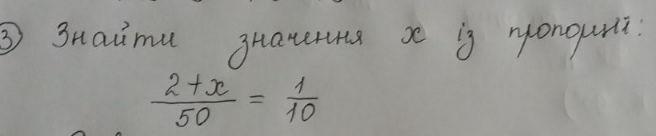 3) Знайти значення x із пропорції:
2+x/50 = 1/10